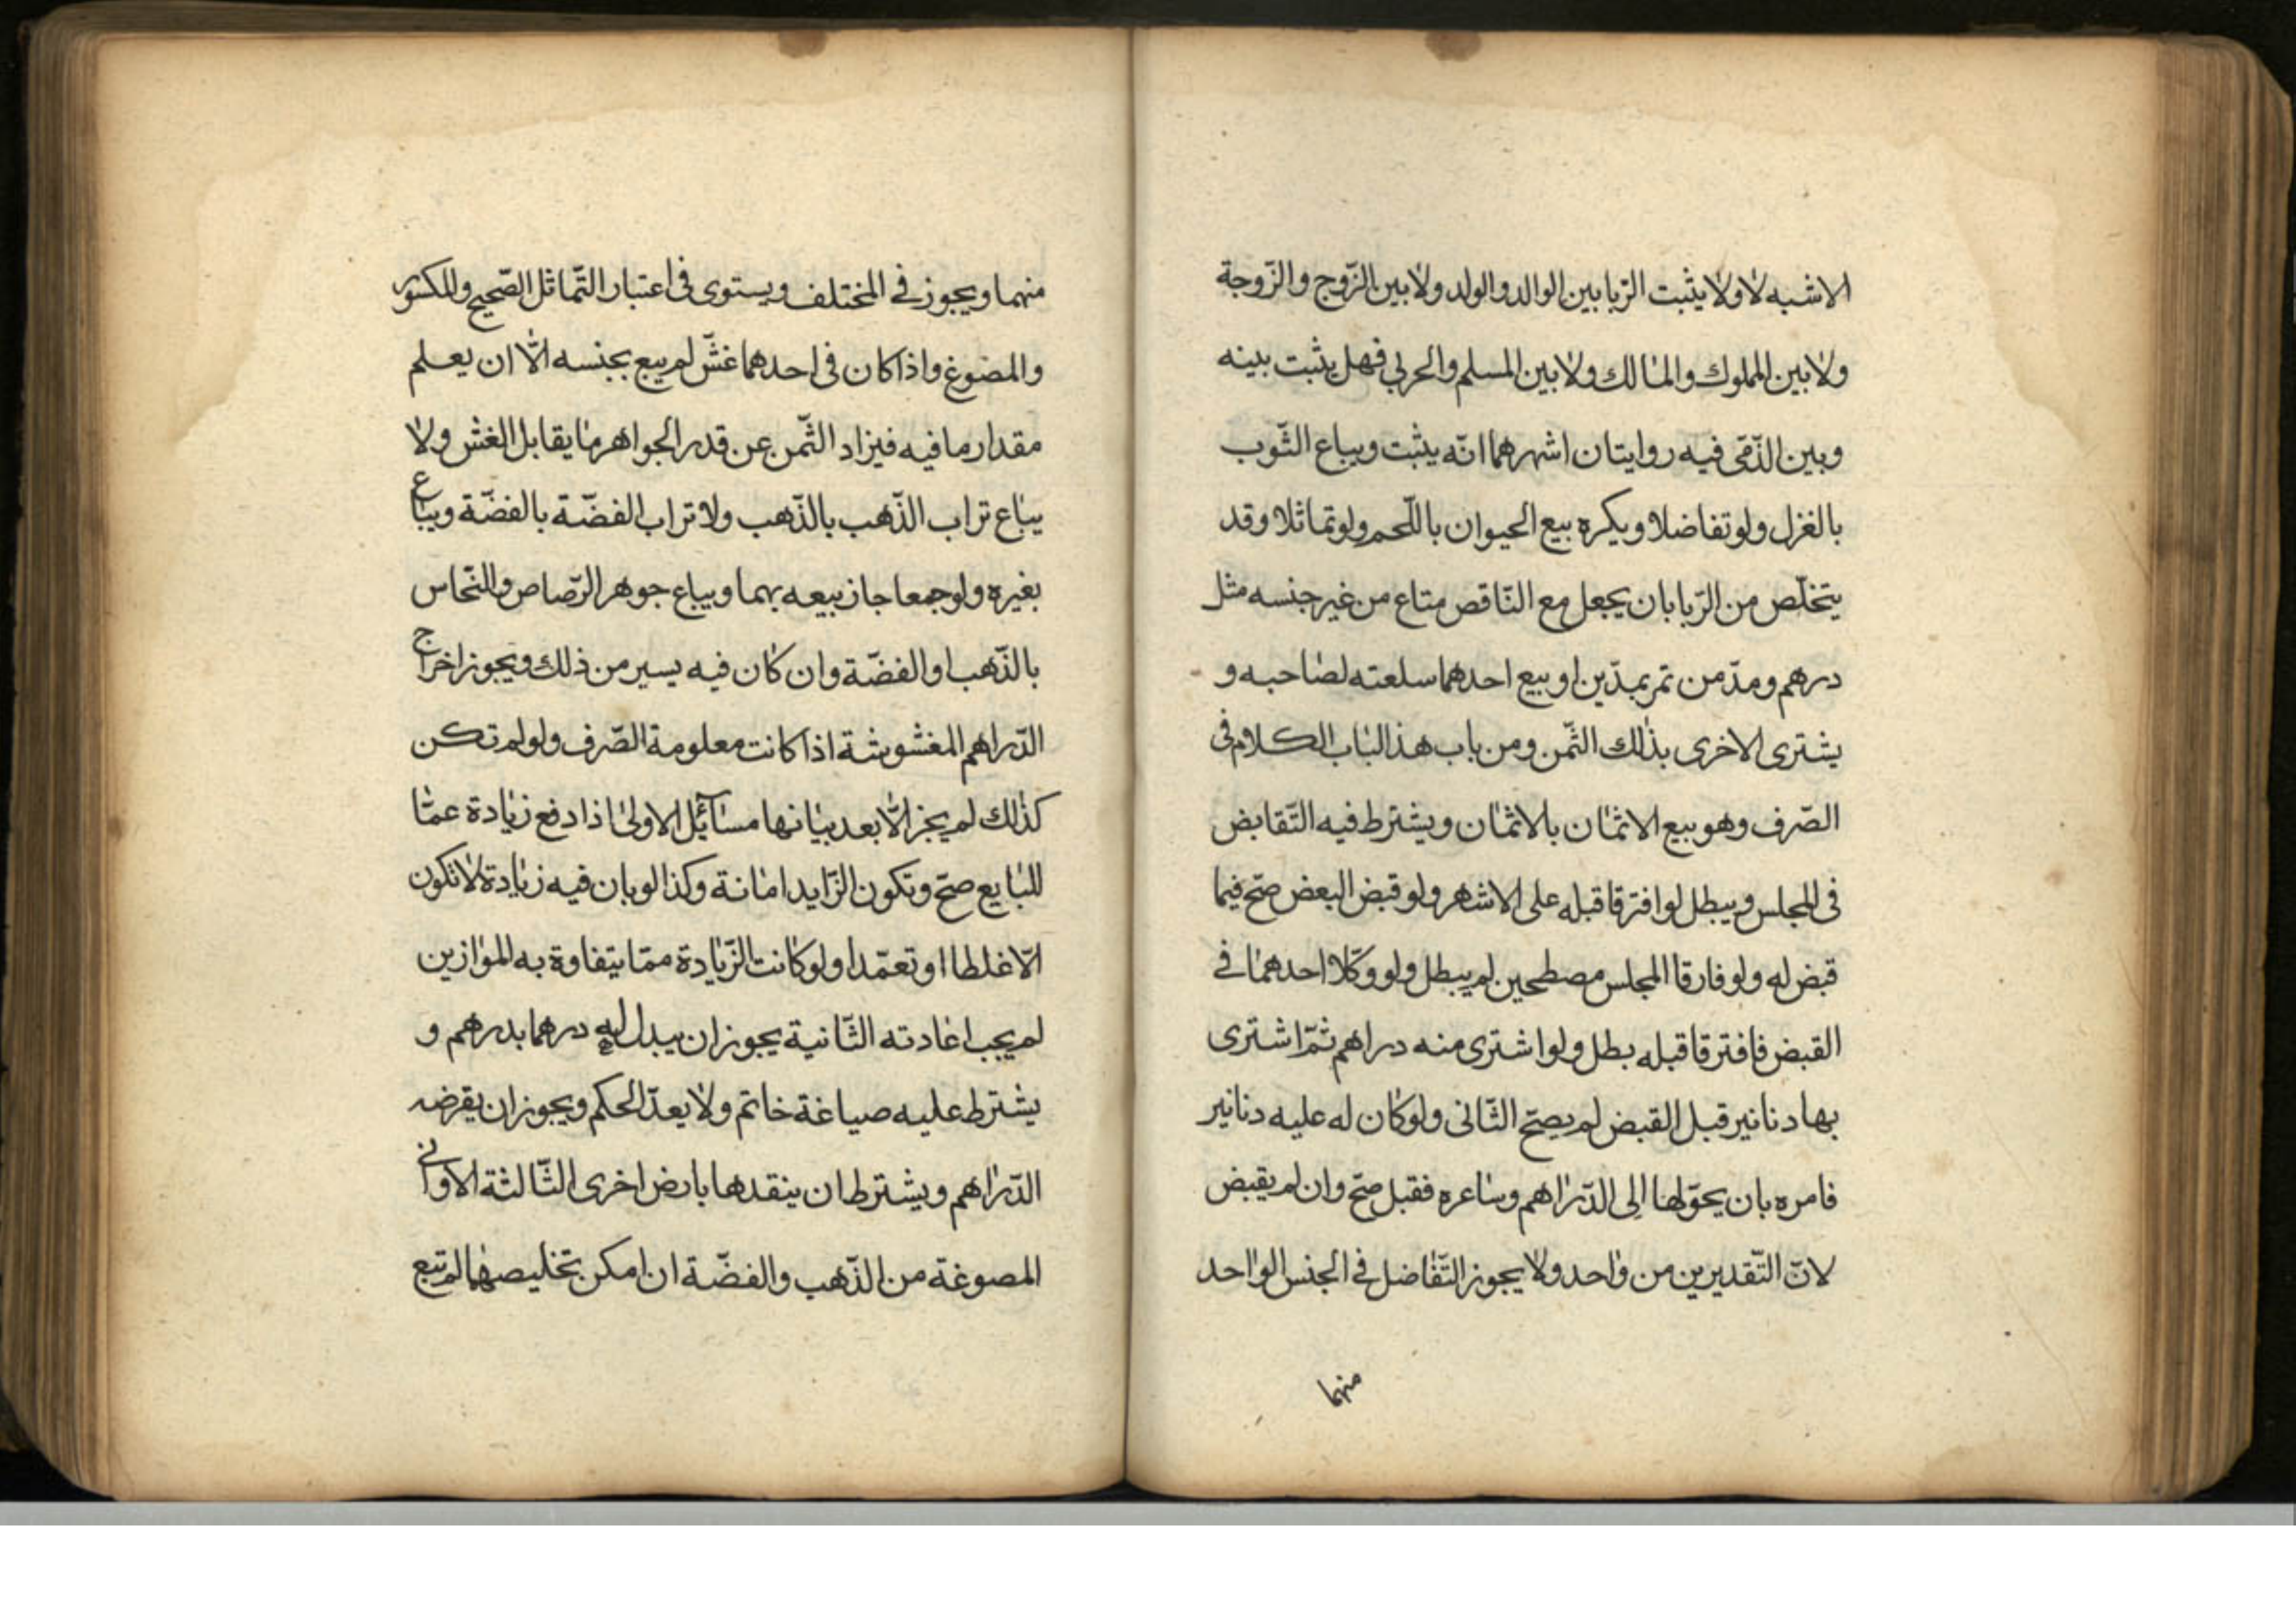 الاشبه لا ولا يثبت الرّبا بين الوالد والولد ولا بين الزّوج والزّوجة
ولا بين المملوك والمالك ولا بين المسلم والحربي فهل يثبت بينه
وبين الذّمّى فيه روايتان اشهرهما انّه يثبت ويباع الثّوب
بالغزل ولو تفاضلا ويكره بيع الحيوان باللّحم ولو تماثلا وقد
يتخلّص من الرّبا بان يجعل مع النّاقص متاع من غير جنسه مثل
درهم ومدّ من تمر بمدّين او بيع احدهما سلعته لصاحبه و
يشترى الاخرى بذلك الثّمن ومن باب هذا الباب الكلام فى
الصّرف وهو بيع الاثمان بالاثمان ويشترط فيه التّقابض
فى المجلس ويبطل لو افترقا قبله على الاشهر ولو قبض البعض صحّ فيما
قبض له ولو فارقا المجلس مصطحبين لم يبطل ولو وكّلا احدهما في
القبض فافترقا قبله بطل ولو اشترى منه دراهم ثمّ اشترى
بها دنانير قبل القبض لم يصحّ الثّانى ولو كان له عليه دنانير
فامره بان يحوّلها الى الدّراهم وساعره فقبل صحّ وان لم يقبض
لانّ التّقديرين من واحد ولا يجوز التّفاضل في الجنس الواحد
منهما
منهما ويجوز في المختلف ويستوى فى اعتبار التّماثل الصّحيح والمكسور
والمصوغ واذا كان فى احدهما غشّ لم يبع بجنسه الّا ان يعلم
مقدار ما فيه فيزاد الثّمن عن قدر الجواهر ما يقابل الغش ولا
يباع تراب الذّهب بالذّهب ولا تراب الفضّة بالفضّة ويباع
بغيره ولو جمعا جاز بيعه بهما ويباع جوهر الرّصاص والنّحاس
بالذّهب او الفضّة وان كان فيه يسير من ذلك ويجوز اخراج
الدّراهم المغشوشة اذا كانت معلومة الصّرف ولو لم تكن
كذلك لم يجز الّا بعد بيانها مسآئل الاولى اذا دفع زيادة عمّا
للبايع صحّ وتكون الزّايد امانة وكذا لو بان فيه زيادة لا تكون
الّا غلطا او تعمّدا ولو كانت الزّيادة ممّا يتفاوة به الموازين
لم يجب اعادته الثّانية يجوز ان يبدل له درهما بدرهم و
يشترط عليه صياغة خاتم ولا يعدّ الحكم ويجوز ان يقرضه
الدّراهم ويشترط ان ينقدها بارض اخرى الثّالثة الاوانى
المصوغة من الذّهب والفضّة ان امكن تخليصهما لم تبع